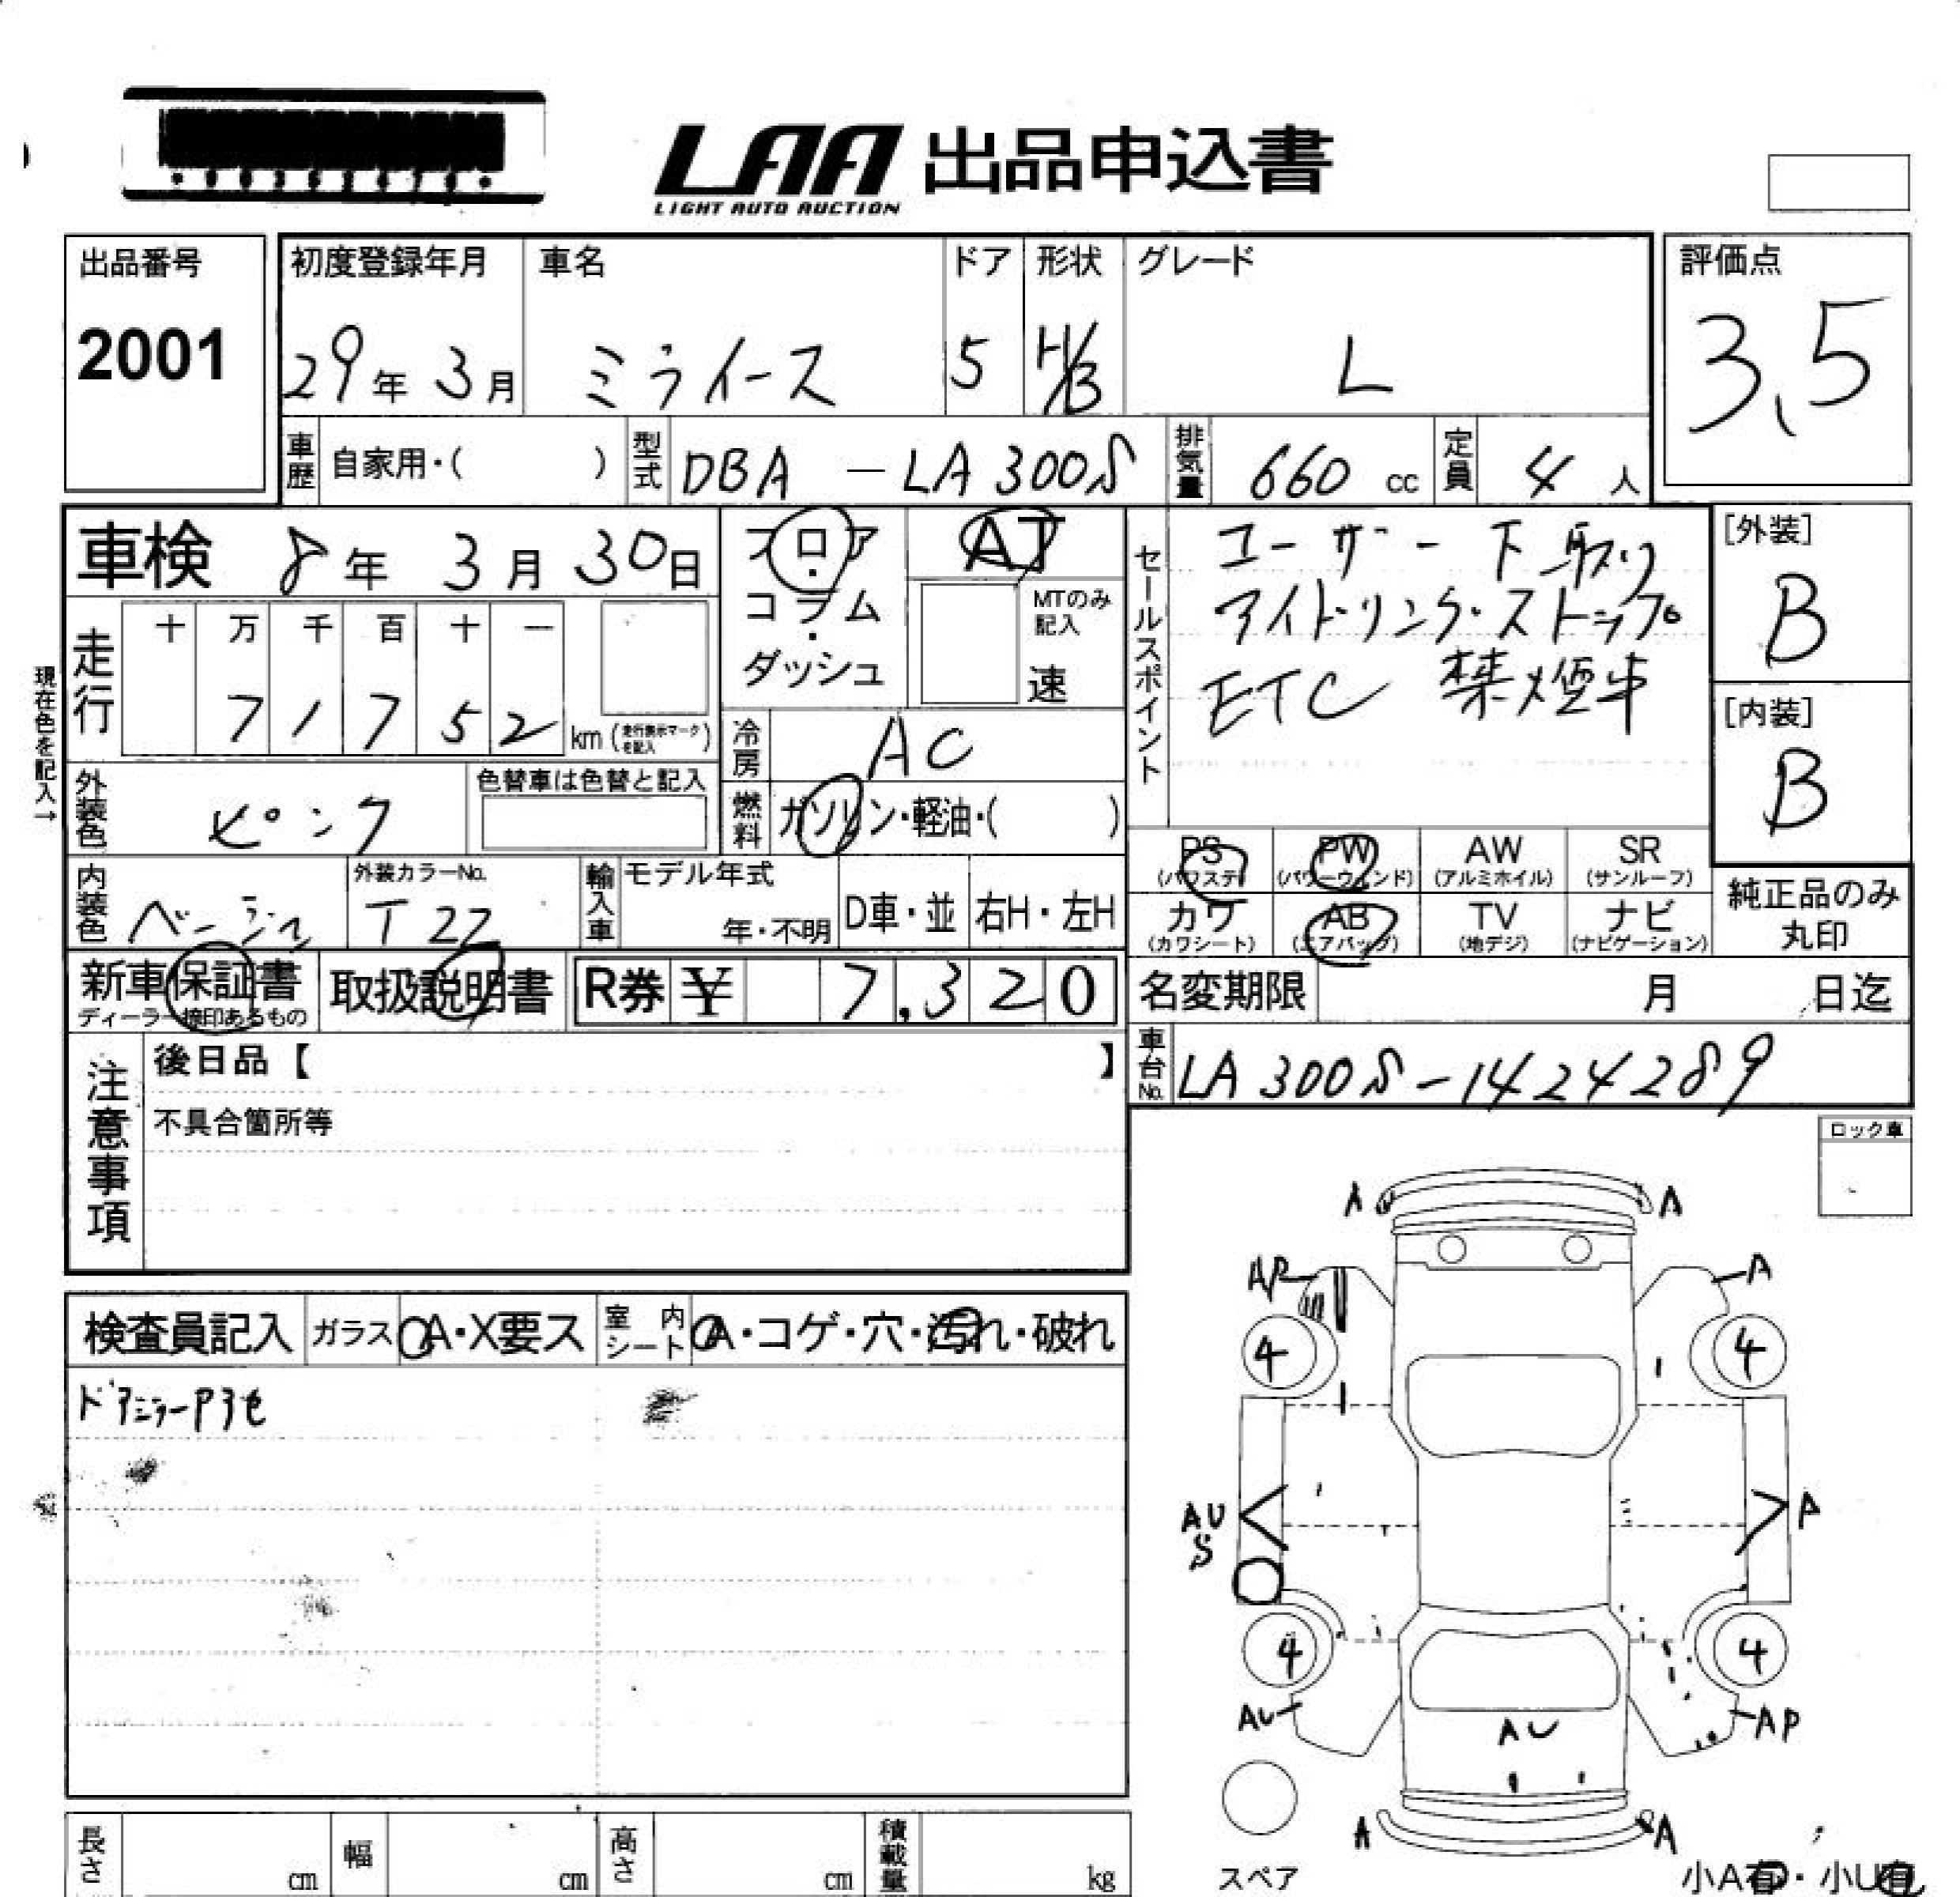 LAA 出品申込書
LIGHT AUTO AUCTION
出品番号
2001
初度登録年月
29年 3月
車名
ミライース
ドア
5
形状
H/B
グレード
L
評価点
3.5
車歴 自家用・( )
型式 DBA - LA300S
排気量 660 cc
定員 4 人
車検 8年 3月 30日
フロア・コラム・ダッシュ
AT
MTのみ記入
速
セールスポイント
ユーザー下取り
アイドリング・ストップ
ETC 禁煙車
[外装]
B
[内装]
B
現在色を記入→
走行
十 万 千 百 十 一
7 1 7 5 2 km (走行表示マークを記入)
冷房 AC
外装色 ピンク
色替車は色替と記入
燃料 ガソリン・軽油・( )
内装色 ベージュ
外装カラーNo.
T22
輸入車
モデル年式
年・不明
D車・並
右H・左H
PS (パワステ)
PW (パワーウィンド)
AW (アルミホイル)
SR (サンルーフ)
カワ (カワシート)
AB (エアバッグ)
TV (地デジ)
ナビ (ナビゲーション)
純正品のみ丸印
新車保証書
ディーラー捺印あるもの
取扱説明書
R券 ¥ 7,320
名変期限 月 日迄
車台No. LA300S-1424289
注意事項
後日品【 】
不具合箇所等
ロック車
検査員記入
ガラス A・X要ス
室内シート A・コゲ・穴・汚れ・破れ
ドアミラーPヨセ
A A
AP A
4 4
AU S A
4 4
AU AU AP
A A
スペア
小A有・小U有
長さ cm
幅 cm
高さ cm
積載量 kg